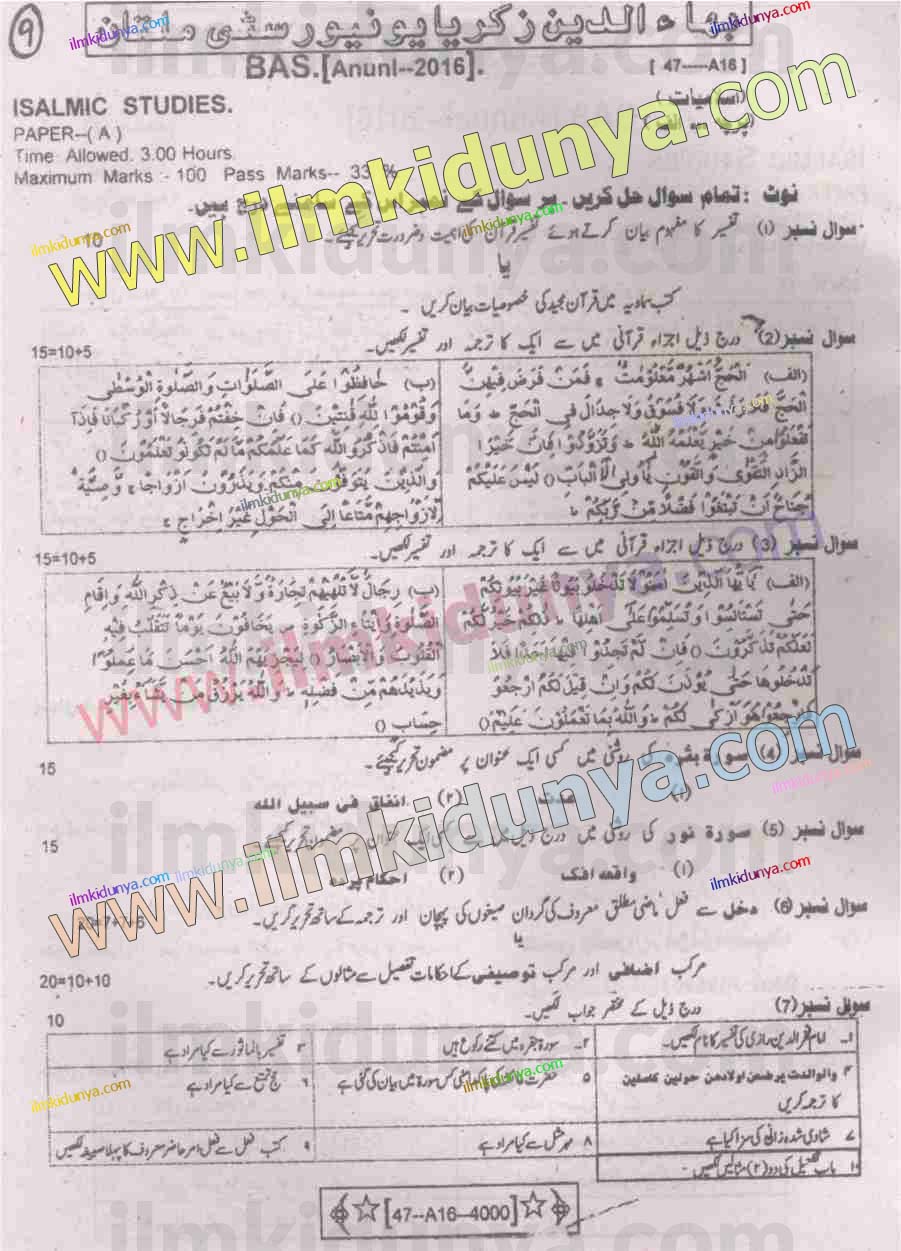 9
بہاء الدین زکریا یونیورسٹی ملتان
BAS.[Anunl--2016].
[ 47-----A16 ]
ISALMIC STUDIES.
PAPER--( A )
Time Allowed. 3.00 Hours.
Maximum Marks :- 100 Pass Marks-- 33 %
نوٹ : تمام سوال حل کریں۔ ہر سوال کے نمبر اس کے سامنے درج ہیں۔
سوال نمبر (1) تفسیر کا مفہوم بیان کرتے ہوئے تفسیر قرآن کی اہمیت و ضرورت تحریر کیجیے۔
10
یا
کتب سماویہ میں قرآن مجید کی خصوصیات بیان کریں۔
سوال نمبر (2) درج ذیل اجزاء قرآنی میں سے ایک کا ترجمہ اور تفسیر لکھیں۔
15=10+5
(الف) اَلْحَجُّ اَشْهُرٌ مَّعْلُوْمٰتٌ ۚ فَمَنْ فَرَضَ فِيْهِنَّ
الْحَجَّ فَلَا رَفَثَ وَلَا فُسُوْقَ وَلَا جِدَالَ فِى الْحَجِّ ط وَمَا
تَفْعَلُوْا مِنْ خَيْرٍ يَّعْلَمْهُ اللّٰهُ ط وَتَزَوَّدُوْا فَاِنَّ خَيْرَ ا
لزَّادِ التَّقْوٰى وَاتَّقُوْنِ يٰٓاُولِى الْاَلْبَابِ () لَيْسَ عَلَيْكُمْ
جُنَاحٌ اَنْ تَبْتَغُوْا فَضْلًا مِّنْ رَّبِّكُمْ ط
(ب) حَافِظُوْا عَلَى الصَّلَوَاتِ وَالصَّلٰوةِ الْوُسْطٰى
وَقُوْمُوْا لِلّٰهِ قٰنِتِيْنَ () فَاِنْ خِفْتُمْ فَرِجَالًا اَوْ رُكْبَانًا فَاِذَا
اَمِنْتُمْ فَاذْكُرُوا اللّٰهَ كَمَا عَلَّمَكُمْ مَّا لَمْ تَكُوْنُوْ تَعْلَمُوْنَ ()
وَالَّذِيْنَ يُتَوَفَّوْنَ مِنْكُمْ وَيَذَرُوْنَ اَزْوَاجًا ۚ وَّصِيَّةً
لِّاَزْوَاجِهِمْ مَّتَاعًا اِلَى الْحَوْلِ غَيْرَ اِخْرَاجٍ ۚ
سوال نمبر (3) درج ذیل اجزاء قرآنی میں سے ایک کا ترجمہ اور تفسیر لکھیں۔
15=10+5
(الف) يٰٓاَيُّهَا الَّذِيْنَ اٰمَنُوْا لَا تَدْخُلُوْا بُيُوْتًا غَيْرَ بُيُوْتِكُمْ
حَتّٰى تَسْتَاْنِسُوْا وَتُسَلِّمُوْا عَلٰٓى اَهْلِهَا ط ذٰلِكُمْ خَيْرٌ لَّكُمْ
لَعَلَّكُمْ تَذَكَّرُوْنَ () فَاِنْ لَّمْ تَجِدُوْا فِيْهَا اَحَدًا فَلَا
تَدْخُلُوْهَا حَتّٰى يُؤْذَنَ لَكُمْ وَاِنْ قِيْلَ لَكُمُ ارْجِعُوْ
فَارْجِعُوْا هُوَ اَزْكٰى لَكُمْ ط وَاللّٰهُ بِمَا تَعْمَلُوْنَ عَلِيْمٌ ()
(ب) رِجَالٌ لَّا تُلْهِيْهِمْ تِجَارَةٌ وَّلَا بَيْعٌ عَنْ ذِكْرِ اللّٰهِ وَاِقَامِ
الصَّلٰوةِ وَاِيْتَاءِ الزَّكٰوةِ يَخَافُوْنَ يَوْمًا تَتَقَلَّبُ فِيْهِ
الْقُلُوْبُ وَالْاَبْصَارُ () لِيَجْزِيَهُمُ اللّٰهُ اَحْسَنَ مَا عَمِلُوْا
وَيَزِيْدَهُمْ مِّنْ فَضْلِهٖ ط وَاللّٰهُ يَرْزُقُ مَنْ يَّشَآءُ بِغَيْرِ
حِسَابٍ ()
سوال نمبر (4) سورۃ بقرہ کی روشنی میں کسی ایک عنوان پر مضمون تحریر کیجیئے۔
15
(۱) عدت (۲) انفاق فی سبیل اللہ
سوال نمبر (5) سورۃ نور کی روشنی میں درج ذیل میں سے کسی ایک عنوان پر مضمون تحریر کیجئے۔
15
(۱) واقعہ افک (۲) احکام پردہ
سوال نمبر (6) دخل سے فعل ماضی مطلق معروف کی گردان صیغوں کی پہچان اور ترجمہ کے ساتھ تحریر کریں۔
یا
مرکب اضافی اور مرکب توصیفی کے احکامات تفصیل سے مثالوں کے ساتھ تحریر کریں۔
20=10+10
سوال نمبر (7) درج ذیل کے مختصر جواب لکھیں۔
10
۱۔ امام فخر الدین رازی کی تفسیر کا نام لکھیں۔ ۲۔ سورۃ بقرہ میں کتنے رکوع ہیں ۳ تفسیر بالماثور سے کیا مراد ہے
۴ والوالدت یرضعن اولادھن حولین کاملین
کا ترجمہ کریں
۵ کس سورۃ میں بیان کی گئی ہے
۶ حج تمتع سے کیا مراد ہے
۷ شادی شدہ زانی کی سزا کیا ہے ۸ مہر مثل سے کیا مراد ہے ۹ کتب فعل سے فعل امر حاضر معروف کا پہلا صیغہ لکھیں
۱۰ باب تفعیل کی دو (۲) مثالیں لکھیں۔
[47--A16--4000]
www.ilmkidunya.com
www.ilmkidunya.com
www.ilmkidunya.com
ilmkidunya.com